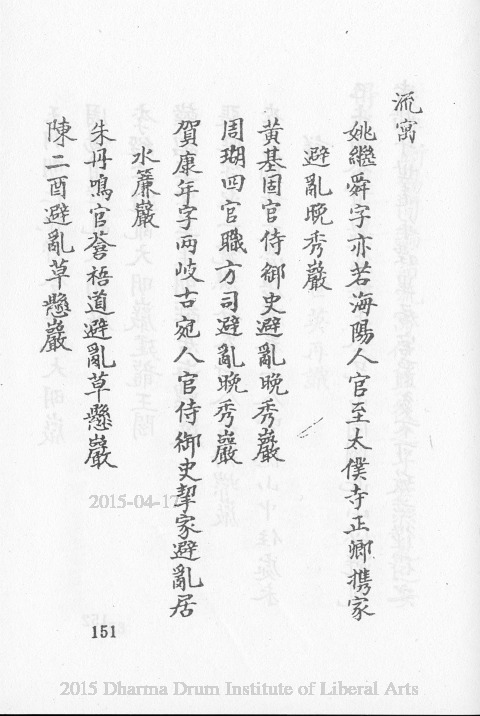 流寓
姚繼舜字亦若海陽人官至太僕寺正卿携家
避亂晚秀巖
黃基固官侍御史避亂晚秀巖
周瑚四官職方司避亂晚秀巖
賀康年字兩岐古宛人官侍御史挈家避亂居
水簾巖
朱丹鳴官蒼梧道避亂草懸巖
陳二酉避亂草懸巖
151
2015-04-17
2015 Dharma Drum Institute of Liberal Arts